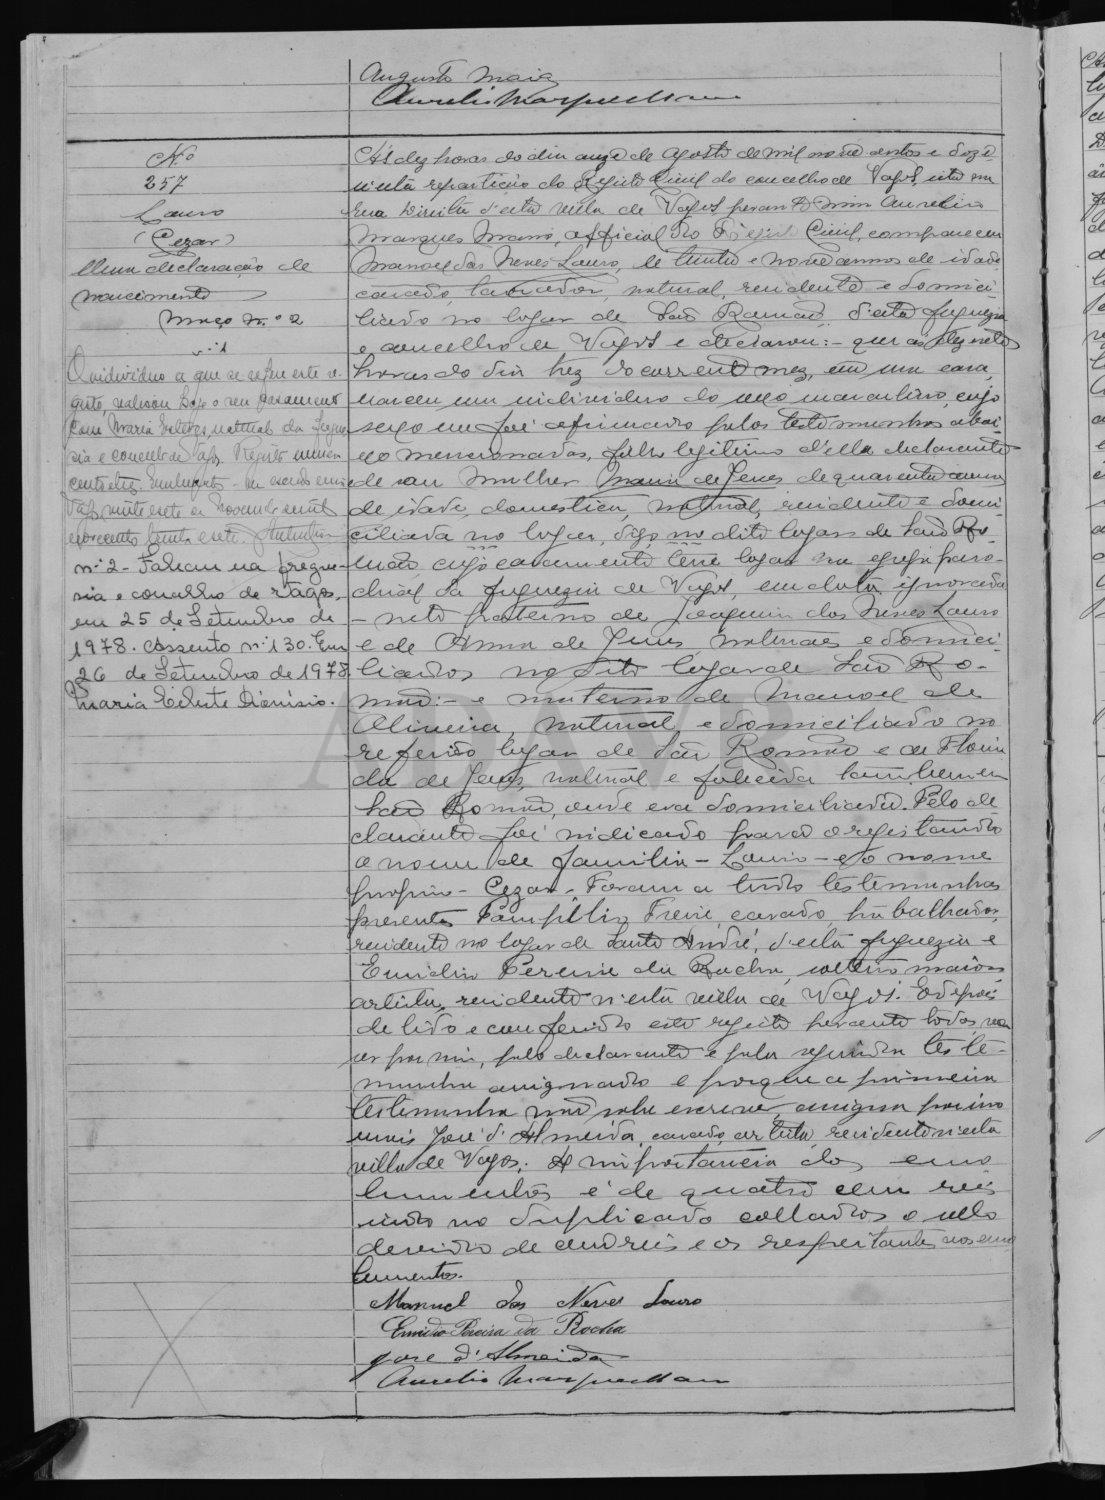 Augusto Maia
Aurelio Marques Mano
N.º
257
Lauro
(Cezar)
Uma declaração de
nascimento
Maço n.º 2
n.º 1
O individuo a que se refere este re-
gisto, realisou hoje o seu casamento
com Maria natural da fregue-
sia e concelho de Vagos. Registo numero
cento e trez.
Vagos, vinte e sete de Novembro de mil
novecentos trinta e sete.
n.º 2 - Faleceu na fregue-
sia e concelho de Vagos,
em 25 de Setembro de
1978. Assento n.º 130. Em
26 de Setembro de 1978.
Maria Celeste Dionisio.
Ás dez horas do dia onze de Agosto de mil nove centos e doze
n'esta repartição do Registo Civil do concelho de Vagos, sita na
Rua Direita d'esta villa de Vagos perante mim Aurelio
Marques Mano, official do Registo Civil, compareceu
Manoel das Neves Lauro, de trinta e nove annos de idade
casado, lavrador, natural, residente e domici-
liado no logar de São Romão, d'esta freguezia
e concelho de Vagos e declarou: - que ás dezesete
horas do dia trez do corrente mez, em sua casa,
nasceu um individuo do sexo masculino, cujo
sexo me foi afirmado pelas testemunhas abai-
xo mencionadas, filho legitimo d'elle declarante
e de sua mulher Maria de Jesus de quarenta annos
de idade, domestica, natural, residente e domi-
ciliada no logar, digo, no dito logar de São Ro-
mão, cujo casamento teve logar na egreja paro-
chial da freguezia de Vagos, em data ignorada
- neto paterno de Joaquim das Neves Lauro
e de Anna de Jesus naturaes e domici-
liados no dito logar de São Ro-
mão: - e materno de Manoel de
Oliveira, natural e domiciliado no
referido logar de São Romão e de Florin-
da de Jesus, natural e falecida tambem em
São Romão, onde era domiciliada. Pelo de-
clarante foi indicado para o registando
o nome de familia - Lauro - e o nome
proprio - Cezar. Foram a tudo testemunhas
presentes Pampilio Freire, casado, trabalhador,
residente no logar de Santo André, d'esta freguezia e
Emidio Pereira da Rocha, solteiro maior
artista, residente n'esta villa de Vagos. E depois
de lido e conferido este registo perante todos, vae
ser por mim, pelo declarante e pela segunda teste-
munha assignado e porque a primeira
testemunha não sabe escrever, assigna por isso
mais José d'Almeida, casado, artista, residente n'esta
villa de Vagos. A importancia dos emo-
lumentos é de quatro cem reis
indo no duplicado collados o sello
devido de cem reis e os respeitantes aos emo-
lumentos.
Manuel das Neves Lauro
Emidio Pereira da Rocha
José d'Almeida
Aurelio Marques Mano